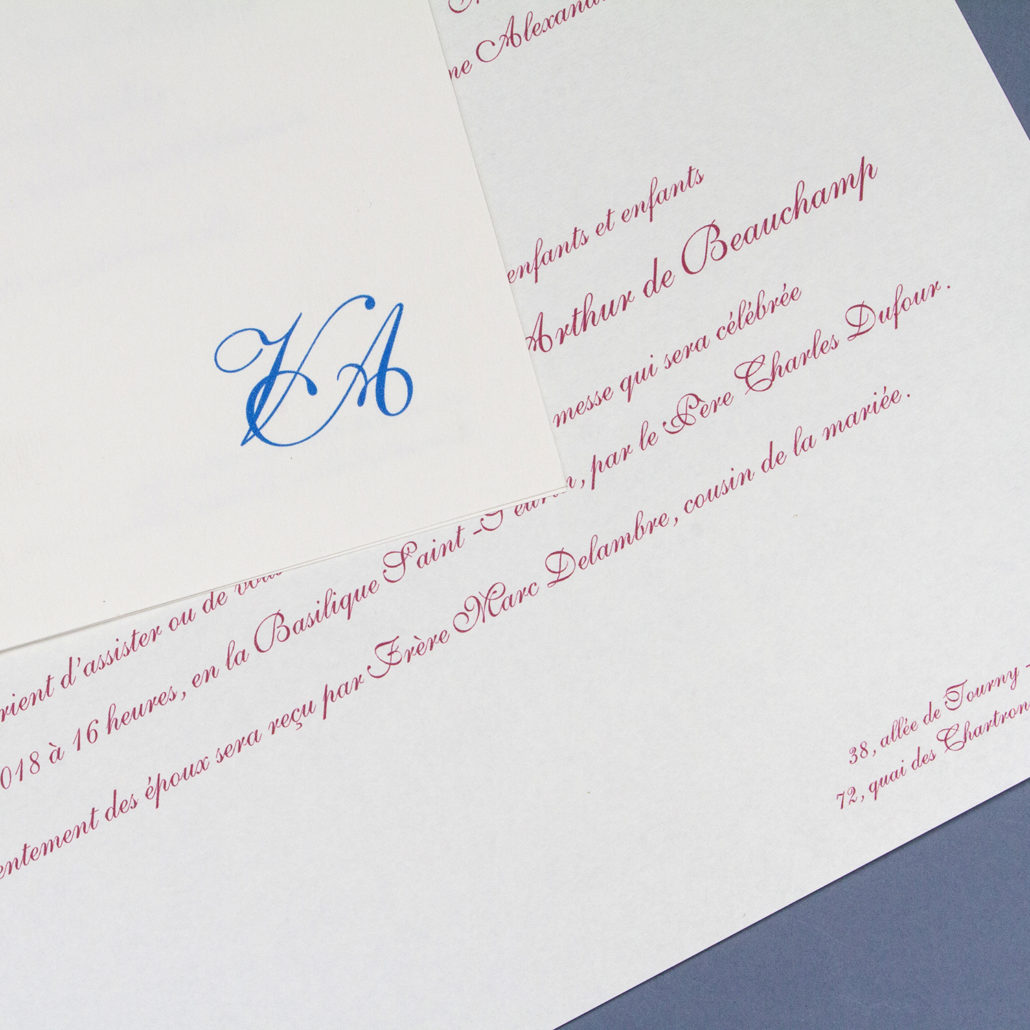 ne Alexand
enfants et enfants
Arthur de Beauchamp
messe qui sera célébrée
018 à 16 heures, en la Basilique Saint-Seurin, par le Père Charles Dufour.
entement des époux sera reçu par Frère Marc Delambre, cousin de la mariée.
rient d'assister ou de vous
VA
38, allée de Tourny -
72, quai des Chartrons